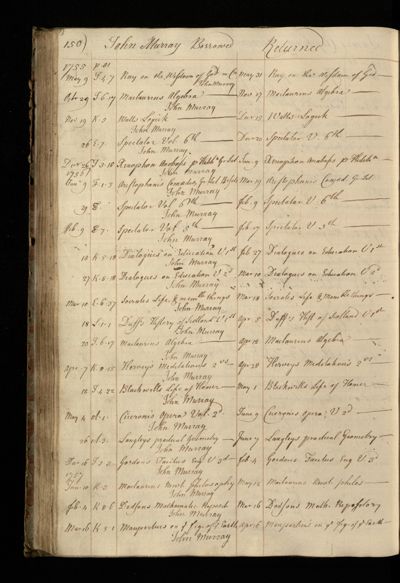 150) John Murray Borrowed Returned
1755 p. 41
May 9 F.4.7 Ray on the Wisdom of God in Cr May 31 Ray on the Wisdom of God
John Murray
Octr 29 I.6.17 Maclaurins Algebra Nov 19 Maclaurins Algebra
John Murray
Nov 19 K.2 Watts Logick Decr 13 Watts Logick
John Murray
26 E.7 Spectator Vol. 6th Decr 20 Spectator V. 6th
John Murray
Decr 26 I.3.10 Xenophon Anabasis p Hutch Gr Lat Jan 9 Xenophon Anabasis p Hutch
1756 John Murray
Jan 9 F.1.3 Aristophanis Comoediae Gr Lat Mar 19 Aristophanis Comoed Gr Lat
John Murray
29 E Spectator Vol 6th Feb. 9 Spectator V 6th
John Murray
Feb. 9 E.7 Spectator Vol 5th Feb 17 Spectator V 5th
John Murray
18 K.5.18 Dialogues on Education V 1st Feb 27 Dialogues on Education V 1st
John Murray
27 K.5.18 Dialogues on Education V 2d Mar 10 Dialogues on Education V 2d
John Murray
Mar 10 E.6.37 Socrates Life & memble things Mar 18 Socrates Life & Memble things
John Murray
18 L.1.1 Duffs History of Scotland V 1st Apr 5 Duffs Hist of Scotland V 1st
John Murray
20 I.6.17 Maclaurins Algebra Apr 12 Maclaurins Algebra
John Murray
Apr 7 K.0.15 Herveys Meditations 2 vs Apr 28 Herveys Meditations 2 vs
John Murray
12 F.4.22 Blackwells Life of Homer May 1 Blackwells Life of Homer
John Murray
May 4 Ciceronis Opera Vol. 2d June 9 Ciceronis opera V 2d
John Murray
26 Langleys practical Geometry June 9 Langleys practical Geometry
John Murray
Decr 16 F.3.2 Gordons Tacitus Eng V 3d Feb 4 Gordons Tacitus Eng V 3d
1757 John Murray
Jan 10 K.2 Maclaurins Newt philosophy May 12 Maclaurins Newt philos
John Murray
Feb 4 K.0.6 Dodsons Mathemat. Reposit Mar 16 Dodsons Math. Repository
John Murray
Mar 16 K.3.1 Maupertuis on ye fig. of ye Earth Apr 6 Maupertuis on ye fig of ye Earth
John Murray